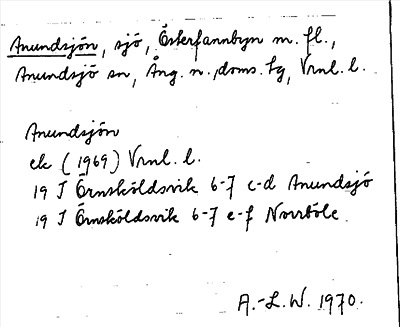 Anundsjön, sjö, Österfannbyn m. fl.,
Anundsjö sn, Ång. n. doms. tg, Vrnl. l.
Anundsjön
ek (1969) Vrnl. l.
19 J Örnsköldsvik 6-7 c-d Anundsjö
19 J Örnsköldsvik 6-7 e-f Norrböle
A.-L.W. 1970.